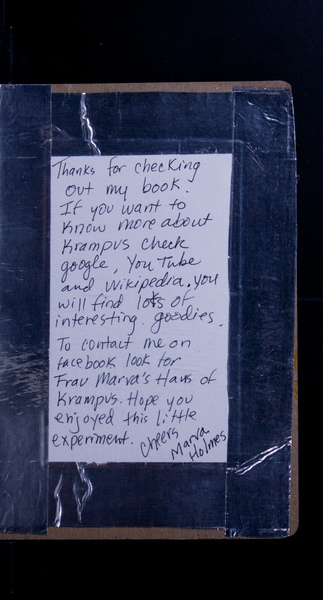 Thanks for checking
out my book.
If you want to
know more about
Krampus check
google, YouTube
and Wikipedia. you
will find lots of
interesting goodies.
To contact me on
facebook look for
Frau Marva's Haus of
Krampus. Hope you
enjoyed this little
experiment. Cheers
Marva
Holmes